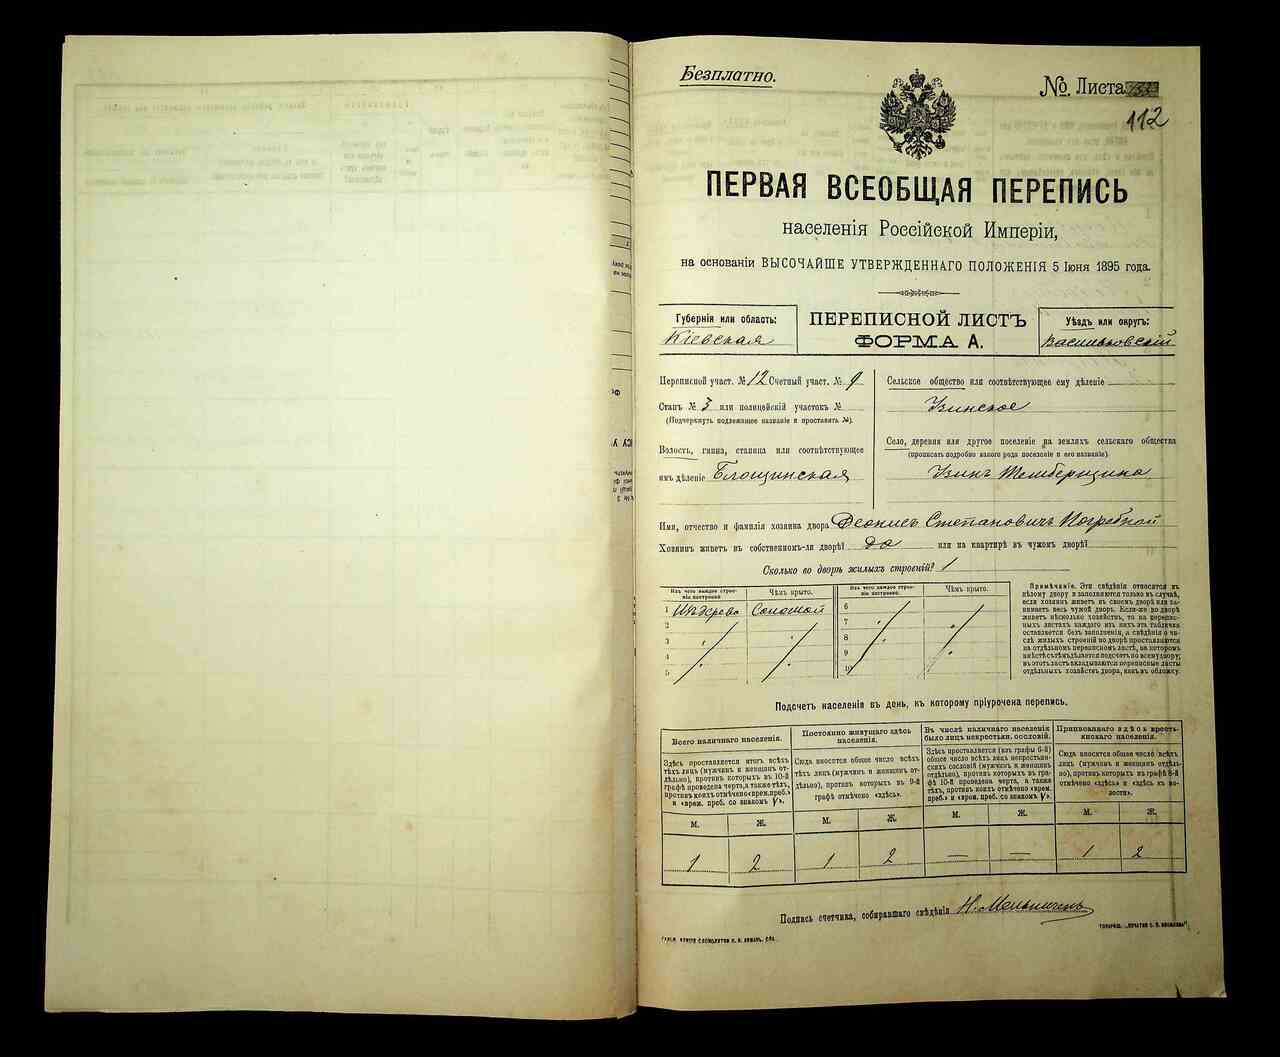 Безплатно.
№ Листа
112
ПЕРВАЯ ВСЕОБЩАЯ ПЕРЕПИСЬ
населенія Россійской Имперіи,
на основаніи ВЫСОЧАЙШЕ УТВЕРЖДЕННАГО ПОЛОЖЕНІЯ 5 Іюня 1895 года.
Губернія или область:
Кіевская
ПЕРЕПИСНОЙ ЛИСТЪ
ФОРМА А.
Уѣздъ или округъ:
Васильковскій
Переписной участ. № 12 Счетный участ. № 9
Станъ № 3 или полицейскій участокъ №
(Подчеркнуть подлежащее названіе и проставить №).
Волость, гмина, станица или соотвѣтствующее
имъ дѣленіе Блощинская
Сельское общество или соотвѣтствующее ему дѣленіе
Узинское
Село, деревня или другое поселеніе на земляхъ сельскаго общества
(прописать подробно какого рода поселеніе и его названіе).
Узинъ Жемберщина
Имя, отчество и фамилія хозяина двора Леонисъ Степановичъ Погребной
Хозяинъ живетъ въ собственномъ-ли дворѣ? да или на квартирѣ въ чужомъ дворѣ?
Сколько во дворѣ жилыхъ строеній? 1
Изъ чего каждое строеніе построено
Чѣмъ крыто.
Изъ чего каждое строеніе построено.
Чѣмъ крыто.
1 Изъ дерева Соломой 6
2 7
3 8
4 9
5 10
Примѣчаніе. Эти свѣдѣнія относятся къ
цѣлому двору и заполняются только въ случаѣ,
если хозяинъ живетъ въ своемъ дворѣ или занимаетъ
весь чужой дворъ. Если-же во дворѣ
живетъ нѣсколько хозяйствъ, то на переписныхъ
листахъ каждаго изъ нихъ эта табличка
оставляется безъ заполненія, а свѣдѣнія о числѣ
жилыхъ строеній во дворѣ проставляются
на отдѣльномъ переписномъ листѣ, на которомъ
вмѣстѣ съ тѣмъ дѣлается подсчетъ по всему двору;
въ этотъ листъ вкладываются переписные листы
отдѣльныхъ хозяйствъ двора, какъ въ обложку.
Подсчетъ населенія въ день, къ которому пріурочена перепись.
Всего наличнаго населенія.
Здѣсь проставляется итогъ всѣхъ
тѣхъ лицъ (мужчинъ и женщинъ отдѣльно),
противъ которыхъ въ 10-й
графѣ проведена черта, а также тѣхъ,
противъ коихъ отмѣчено «врем. преб.»
и «врем. преб. со знакомъ V».
Постоянно живущаго здѣсь
населенія.
Сюда вносится общее число всѣхъ
тѣхъ лицъ (мужчинъ и женщинъ отдѣльно),
противъ которыхъ въ 9-й
графѣ отмѣчено «здѣсь».
Въ числѣ наличнаго населенія
было лицъ некрестьян. сословій.
Здѣсь проставляется (изъ графы 6-й)
общее число всѣхъ лицъ некрестьянскихъ
сословій (мужчинъ и женщинъ
отдѣльно), противъ которыхъ въ графѣ
10-й проведена черта, а также
тѣхъ, противъ коихъ отмѣчено «врем.
преб.» и «врем. преб. со знакомъ V».
Приписаннаго здѣсь крестьянскаго
населенія.
Сюда вносится общее число всѣхъ
лицъ (мужчинъ и женщинъ отдѣльно),
противъ которыхъ въ графѣ 8-й
отмѣчено «здѣсь» и «здѣсь въ волости».
М. Ж. М. Ж. М. Ж. М. Ж.
1 2 1 2 — — 1 2
Подпись счетчика, собиравшаго свѣдѣнія Н. Мельничен